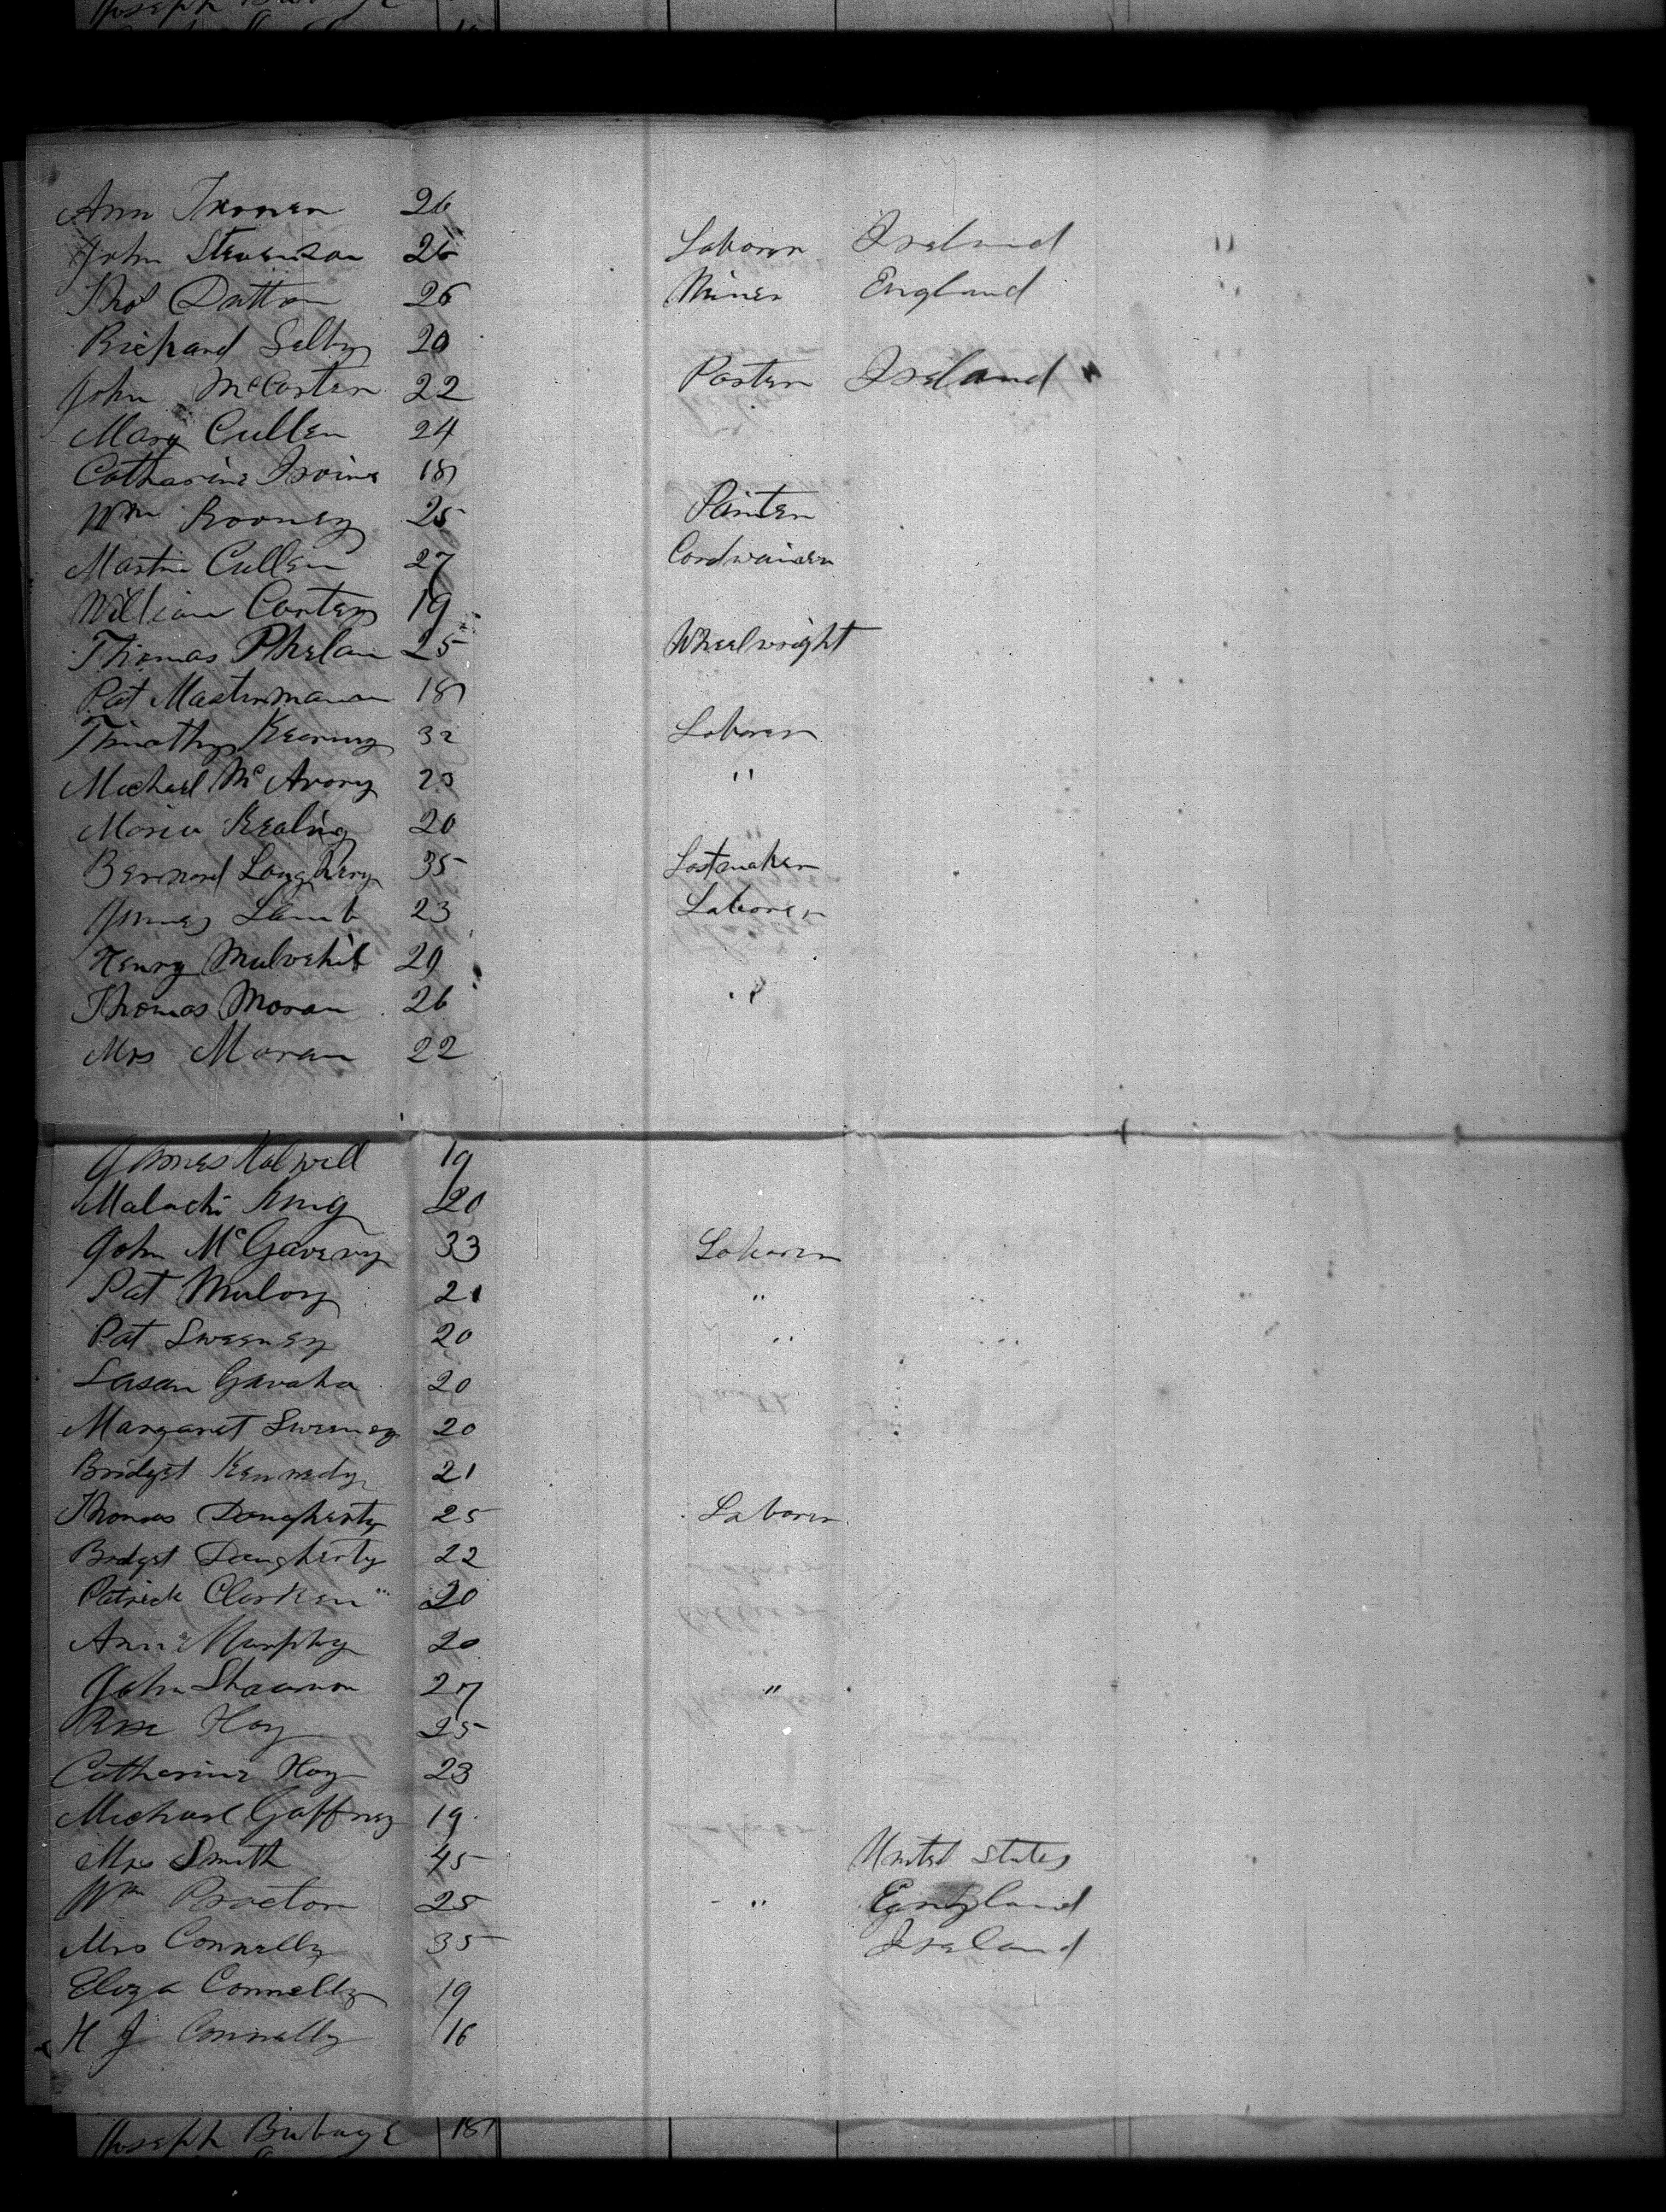 Ann 26
John Stevenson 26 Laborer Ireland "
Thos Dutton 26 Miner England "
Richard Selby 20 "
John McCarten 22 Porter Ireland
Mary Cullen 24
Catharine Irvine 18
Wm Rooney 25 Painter
Martin Cullen 27 Cordwainer
William Carter 19
Thomas Phelan 25 Wheelwright
Pat Masterman 18
Timothy Kearney 32 Laborer
Michael McAvory 23 "
Maria Kealing 20
Bernard Loughery 35 Lastmaker
James Lamb 23 Laborer
Henry Mulvehil 29
Thomas Moran 26 "
Mrs Moran 22
James 19
Malachi King 20
John McGaverny 33 Laborer
Pat Muloy 21 "
Pat Sweeney 20 "
Susan Gavaha 20
Margaret Sweeney 20
Bridget Kennedy 21
Thomas Dougherty 25 Laborer
Bridget Dougherty 22
Patrick Clarken 20
Ann Murphy 20
John Shannon 27 "
Rose Hoy 25
Catherine Hoy 23
Michael Gaffney 19
Mrs Smith 45 United States
Wm Proctor 25 " England
Mrs Connelly 35 Ireland
Eliza Connelly 19
H J Connelly 16
Joseph 18